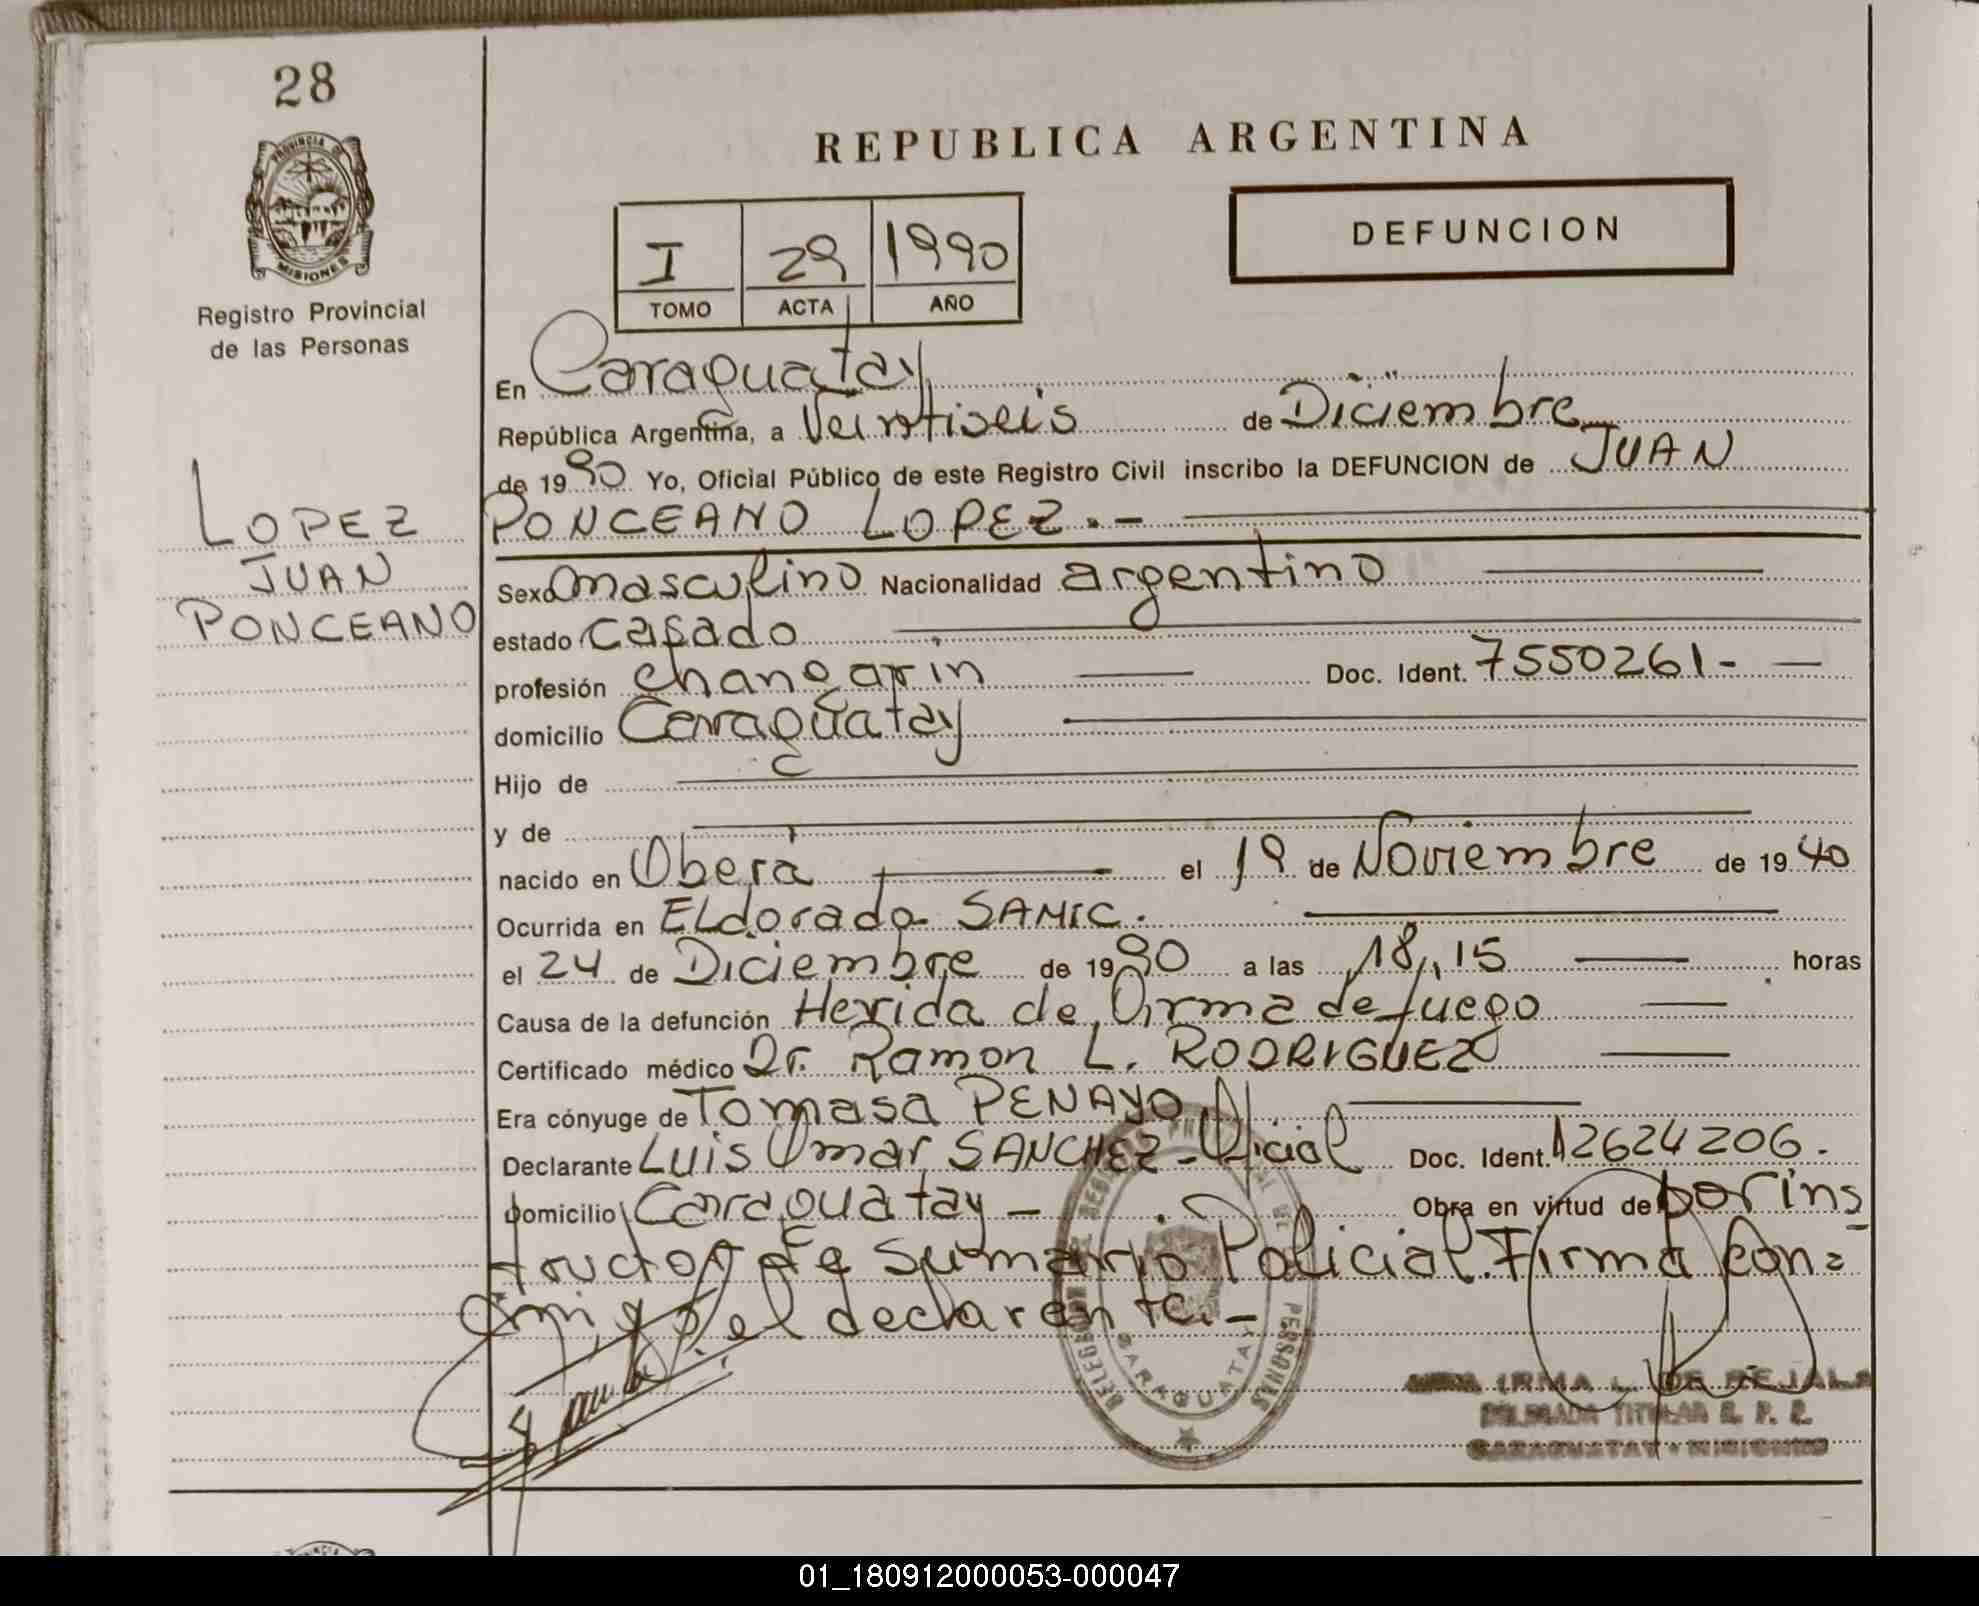 28
PROVINCIA DE
MISIONES
Registro Provincial
de las Personas
REPUBLICA ARGENTINA
I 29 1990
TOMO ACTA AÑO
DEFUNCION
En Caraguatay
República Argentina, a Veintiseis de Diciembre
de 1990 Yo, Oficial Público de este Registro Civil inscribo la DEFUNCION de JUAN
PONCEANO LOPEZ.-
LOPEZ
JUAN
PONCEANO
Sexo masculino Nacionalidad argentino
estado casado
profesión changarin Doc. Ident. 7550261-
domicilio Caraguatay
Hijo de
y de
nacido en Oberá el 19 de Noviembre de 1940
Ocurrida en ELdorado- SAMIC.
el 24 de Diciembre de 1990 a las 18,,15 horas
Causa de la defunción Herida de Arma de fuego
Certificado médico Dr. Ramon L. RODRIGUEZ
Era cónyuge de Tomasa PENAYO
Declarante Luis Omar SANCHEZ- Oficial Doc. Ident. 12624206.-
Domicilio Caraguatay - Obra en virtud de por ins
tructor de Sumario Policial. Firma con=
migo el declarante.-
PERSONAS
CARAGUATAY
IRMA L. DE REJALA
DELEGADA TITULAR R. P. P.
CARAGUATAY - MISIONES
01_180912000053-000047